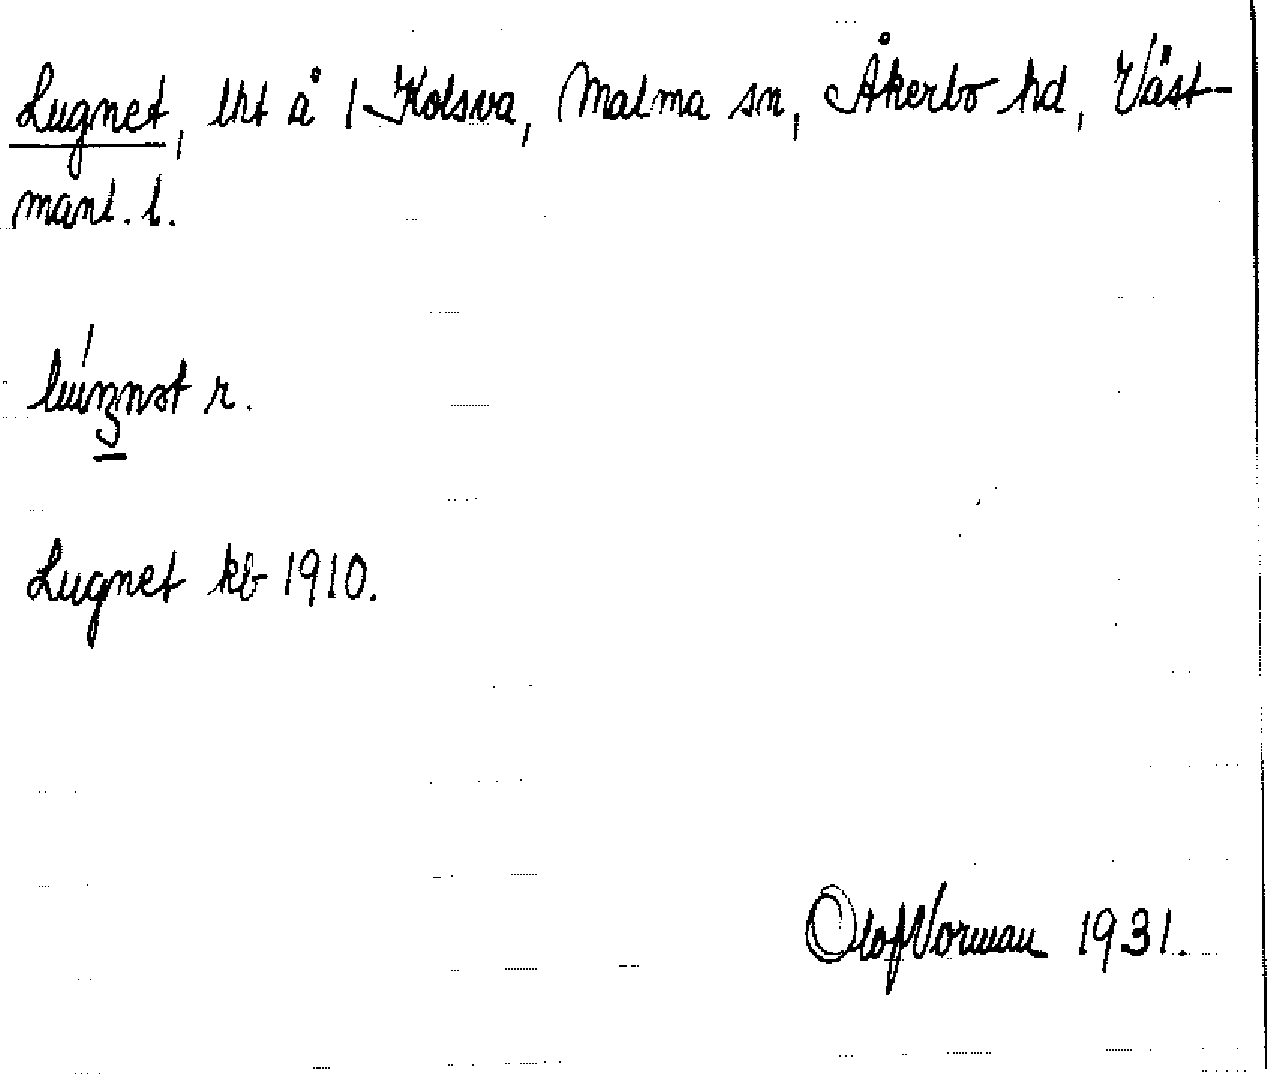 Lugnet, lht å 1 Kolsva, Malma sn, Åkerbo hd, Väst-
manl. l.
r.
Lugnet kb 1910.
Olof Vorman 1931.